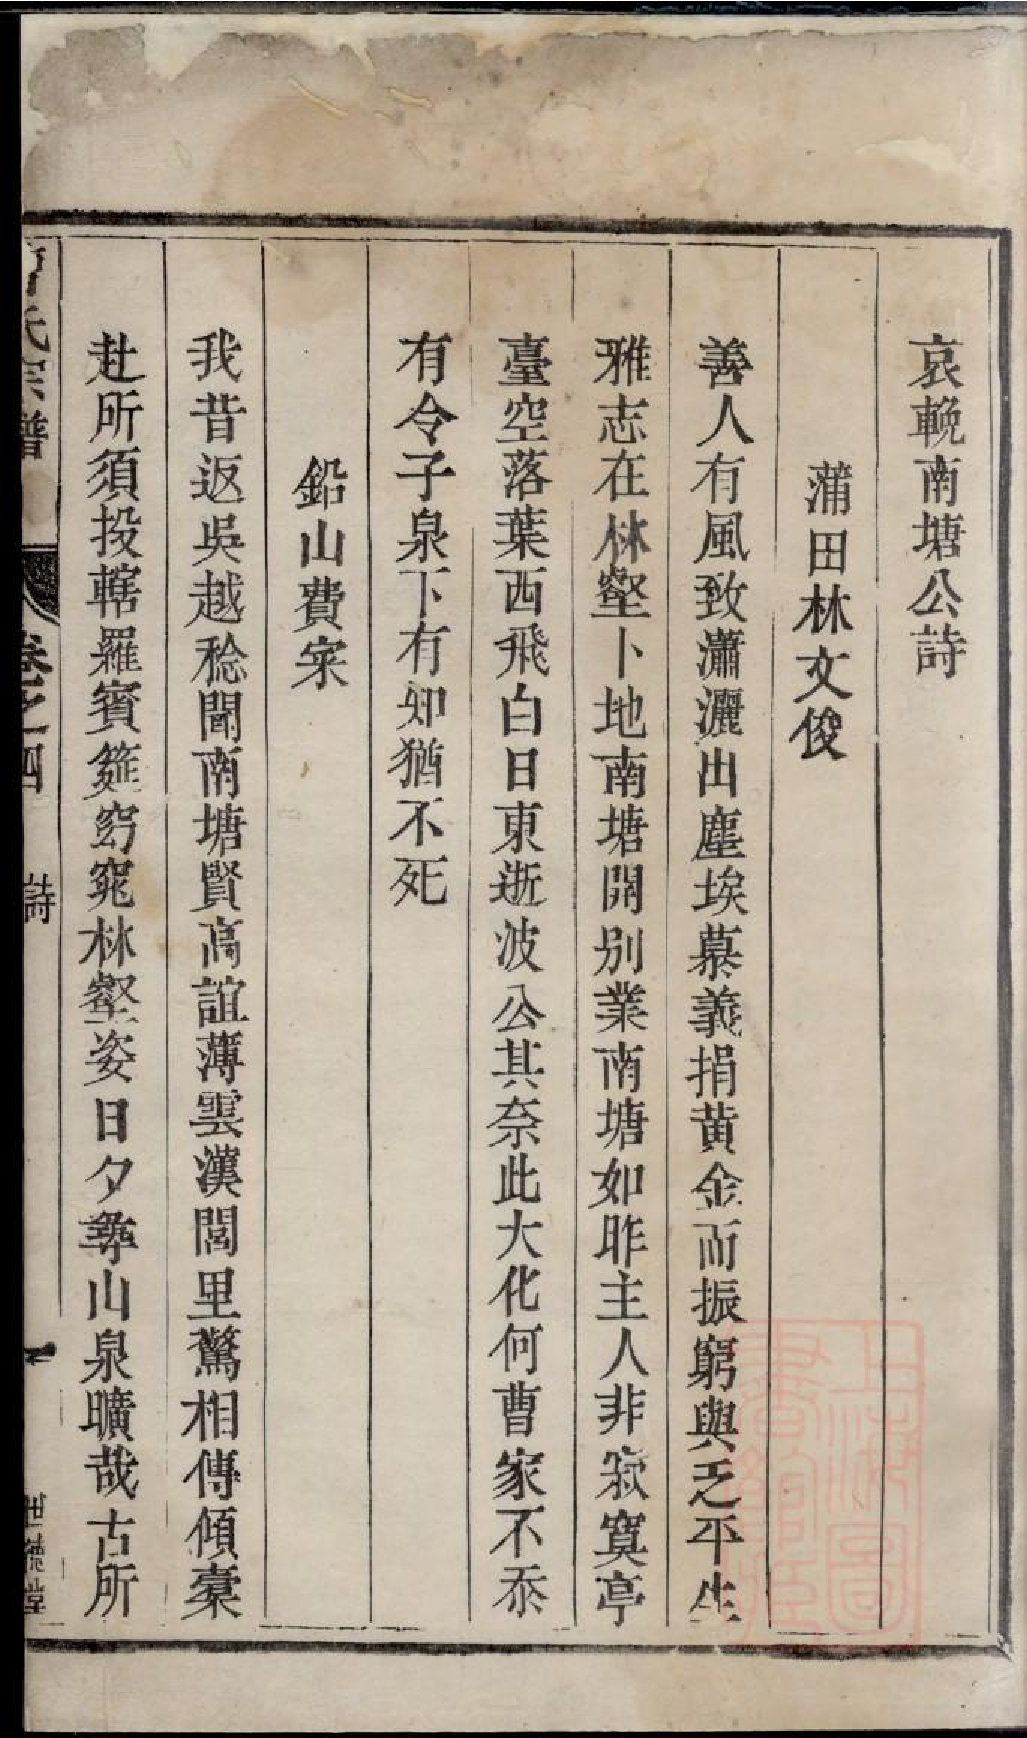 哀輓南塘公詩
蒲田林文俊
善人有風致瀟灑出塵埃慕義捐黃金而振窮與乏平生
雅志在林壑卜地南塘開別業南塘如昨主人非寂寞亭
臺空落葉西飛白日東逝波公其奈此大化何曹家不忝
有令子泉下有知猶不死
鉛山費寀
我昔返吳越稔聞南塘賢高誼薄雲漢閭里驚相傳傾橐
赴所須投轄羅賓筵窈窕林壑姿日夕尋山泉曠哉古所
氏宗譜 卷之四 詩 世德堂
上海圖書館藏